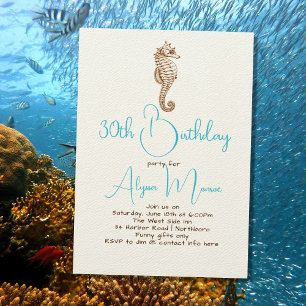 30th Birthday
party for
Alyssa Monroe
Join us on
Saturday, June 18th at 6:00pm
The West Side Inn
34 Harbor Road | Northmoore
Funny gifts only
RSVP to Jim @ contact info here